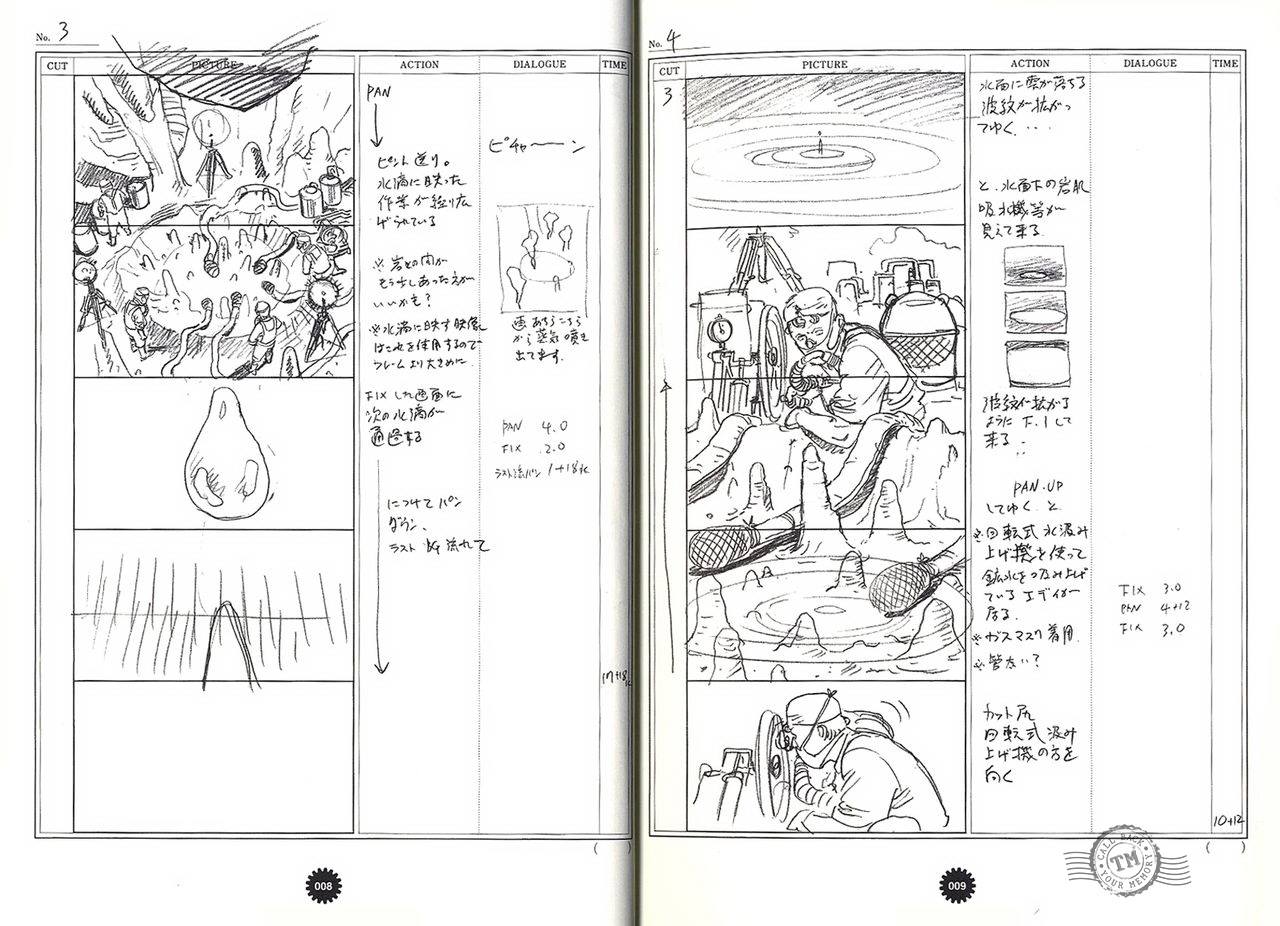 No. 3
CUT
PICTURE
ACTION
DIALOGUE
TIME
PAN
ピント送り。
水滴に映った
作業が繰り広
げられている
※岩との間が
もう少しあった方が
いいかも?
※水滴に映す映像
はこれを使用するので
フレームより大きめに
FIXした画面に
次の水滴が
通過する
につけてパン
ダウン、
ラスト 流れて
ピチャーーン
画あちらこちら
から蒸気噴き
出てます。
PAN 4.0
FIX 2.0
1+18
17+18
008
No. 4
CUT
PICTURE
ACTION
DIALOGUE
TIME
3
水面に雫が落ちる
波紋が拡がっ
てゆく・・・
と、水面下の岩肌
吸水機等が
見えて来る
波紋が拡がる
ように F.Iして
来る
PAN.UP
してゆくと
※回転式水汲み
上げ機を使って
鉱水をつみ上げ
ているエディが
居る
※ガスマスク着用
※管ない?
カット尻
回転式汲み
上げ機の方を
向く
FIX 3.0
PAN 4+12
FIX 3.0
10+12
009
CALL BACK
TM
YOUR MEMORY